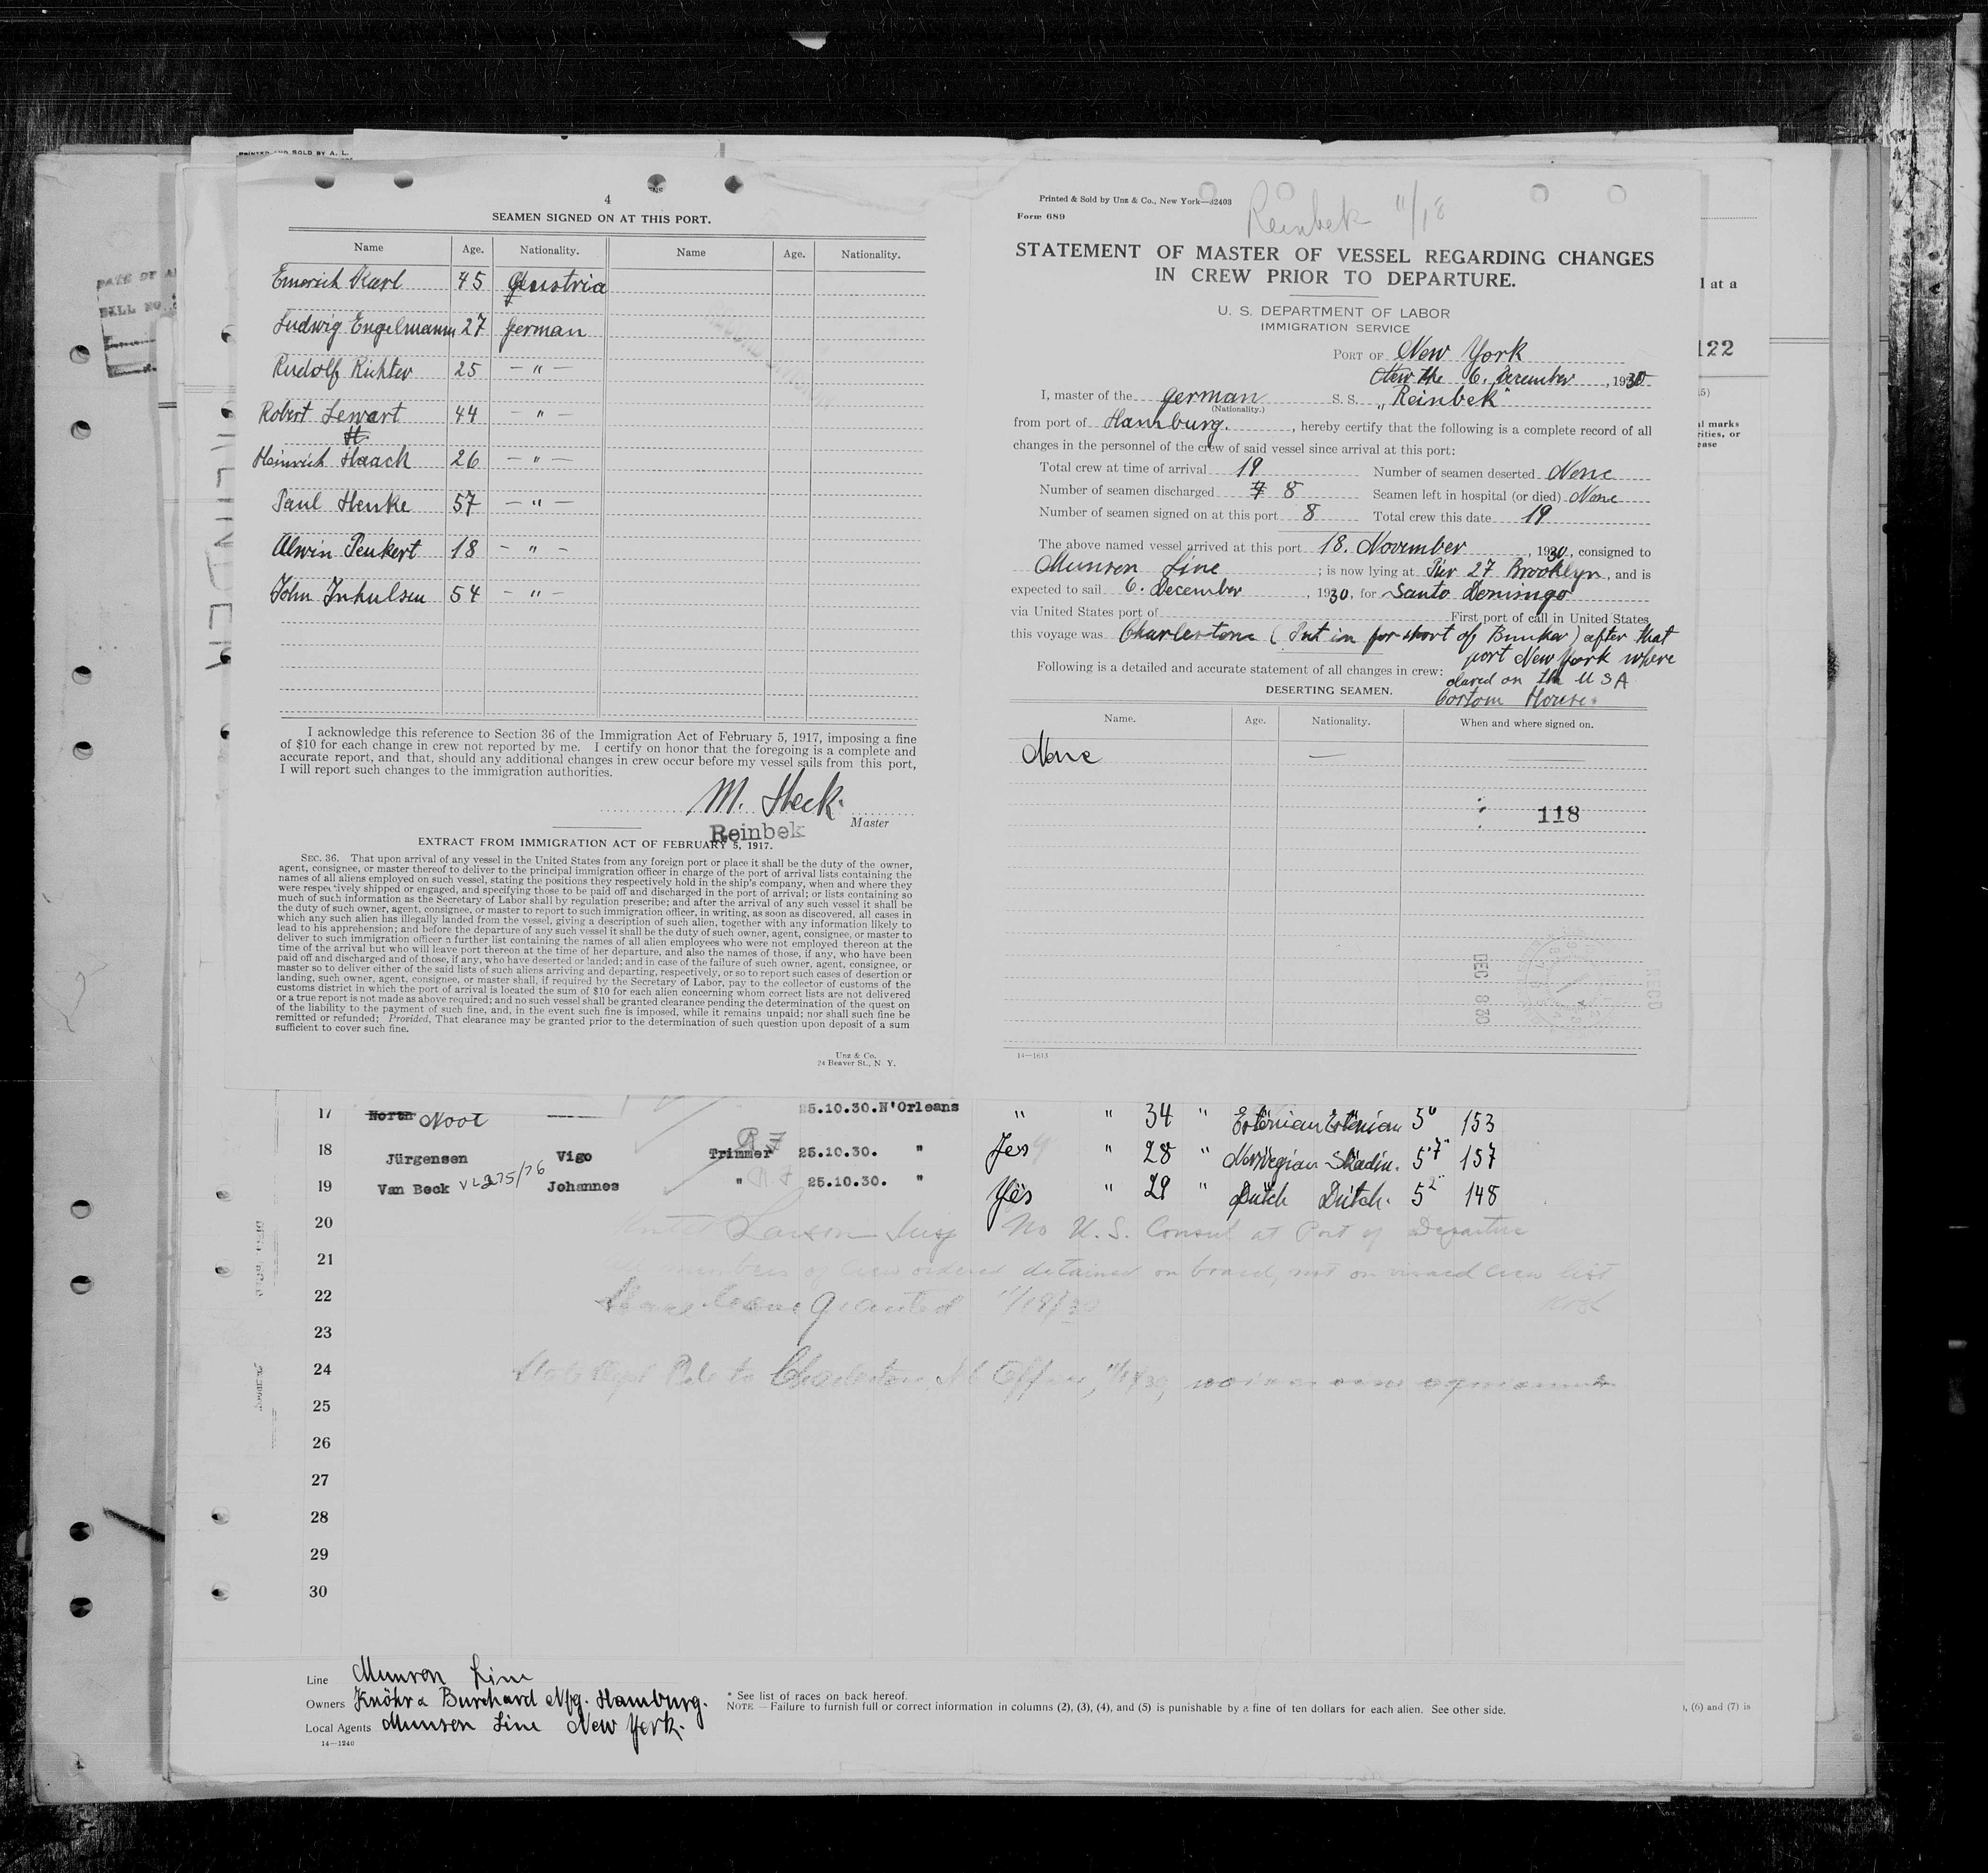 PRINTED AND SOLD BY A. L.
4
SEAMEN SIGNED ON AT THIS PORT.
Name Age. Nationality. Name Age. Nationality.
Emerich Karl 45 Austria
Ludwig Engelmann 27 german
Rudolf Richter 25 — " —
Robert Lewart 44 — " —
Heinrich Haack 26 — " —
Paul Henke 57 — " —
Alwin Penkert 18 — " —
John Inhulsen 54 — " —
I acknowledge this reference to Section 36 of the Immigration Act of February 5, 1917, imposing a fine
of $10 for each change in crew not reported by me. I certify on honor that the foregoing is a complete and
accurate report, and that, should any additional changes in crew occur before my vessel sails from this port,
I will report such changes to the immigration authorities.
M. Heck.
Master
Reinbek
EXTRACT FROM IMMIGRATION ACT OF FEBRUARY 5, 1917.
SEC. 36. That upon arrival of any vessel in the United States from any foreign port or place it shall be the duty of the owner,
agent, consignee, or master thereof to deliver to the principal immigration officer in charge of the port of arrival lists containing the
names of all aliens employed on such vessel, stating the positions they respectively hold in the ship's company, when and where they
were respectively shipped or engaged, and specifying those to be paid off and discharged in the port of arrival; or lists containing so
much of such information as the Secretary of Labor shall by regulation prescribe; and after the arrival of any such vessel it shall be
the duty of such owner, agent, consignee, or master to report to such immigration officer, in writing, as soon as discovered, all cases in
which any such alien has illegally landed from the vessel, giving a description of such alien, together with any information likely to
lead to his apprehension; and before the departure of any such vessel it shall be the duty of such owner, agent, consignee, or master to
deliver to such immigration officer a further list containing the names of all alien employees who were not employed thereon at the
time of the arrival but who will leave port thereon at the time of her departure, and also the names of those, if any, who have been
paid off and discharged and of those, if any, who have deserted or landed; and in case of the failure of such owner, agent, consignee, or
master so to deliver either of the said lists of such aliens arriving and departing, respectively, or so to report such cases of desertion or
landing, such owner, agent, consignee, or master shall, if required by the Secretary of Labor, pay to the collector of customs of the
customs district in which the port of arrival is located the sum of $10 for each alien concerning whom correct lists are not delivered
or a true report is not made as above required; and no such vessel shall be granted clearance pending the determination of the quest on
of the liability to the payment of such fine, and, in the event such fine is imposed, while it remains unpaid; nor shall such fine be
remitted or refunded; Provided, That clearance may be granted prior to the determination of such question upon deposit of a sum
sufficient to cover such fine.
Unz & Co.
24 Beaver St., N. Y.
Printed & Sold by Unz & Co., New York—32403
Form 689
Reinbek 11/18
STATEMENT OF MASTER OF VESSEL REGARDING CHANGES
IN CREW PRIOR TO DEPARTURE.
U. S. DEPARTMENT OF LABOR
IMMIGRATION SERVICE
PORT OF New York
the 6. December, 1930
I, master of the german S. S. „Reinbek"
(Nationality.)
from port of Hamburg., hereby certify that the following is a complete record of all
changes in the personnel of the crew of said vessel since arrival at this port:
Total crew at time of arrival 19 Number of seamen deserted None
Number of seamen discharged 8 Seamen left in hospital (or died) None
Number of seamen signed on at this port 8 Total crew this date 19
The above named vessel arrived at this port 18. November, 1930, consigned to
Munson Line; is now lying at Pier 27 Brooklyn, and is
expected to sail 6. December, 1930, for Santo Domingo
via United States port of First port of call in United States
this voyage was Charlestone (Put in for short of Bunker) after that
port New York where
Following is a detailed and accurate statement of all changes in crew:
clared on the USA
DESERTING SEAMEN.
Costom House.
Name. Age. Nationality. When and where signed on.
None — —
118
DEC 8 30
RECD
14—1613
1 at a
122
17 North Nool 25.10.30. N'Orleans " " 34 " Estonian Estonian 5 6 153
18 Jürgensen Vigo Trimmer 25.10.30. " Yes " 28 " Norwegian Skadin. 5 7" 157
19 Van Beck Johannes " 25.10.30. " Yes " 29 " Dutch Dutch. 5 2" 148
20 Larson Insp No U. S. Consul at Port of Departure
21 members of crew ordered detained on board, not on visaed crew list
22 Shore leave granted 11/19/30
23
24 Charleston
25
26
27
28
29
30
Line Munson Line
Owners Knöhr & Burchard Nfg. Hamburg.
Local Agents Munson Line New York.
14—1240
* See list of races on back hereof.
NOTE.—Failure to furnish full or correct information in columns (2), (3), (4), and (5) is punishable by a fine of ten dollars for each alien. See other side.
, (6) and (7) is